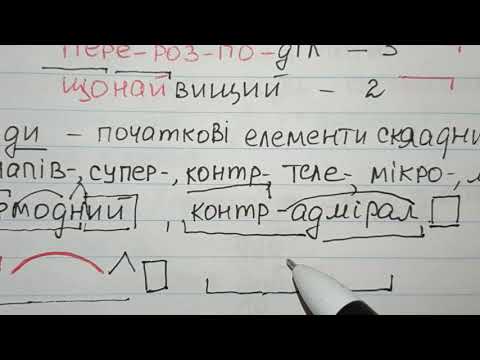 пере-роз-по-діл - 3
щонайвищий - 2
ди - початкові елементи складни
напів-, супер-, контр- теле- мікро-,
модний, контр-адмірал